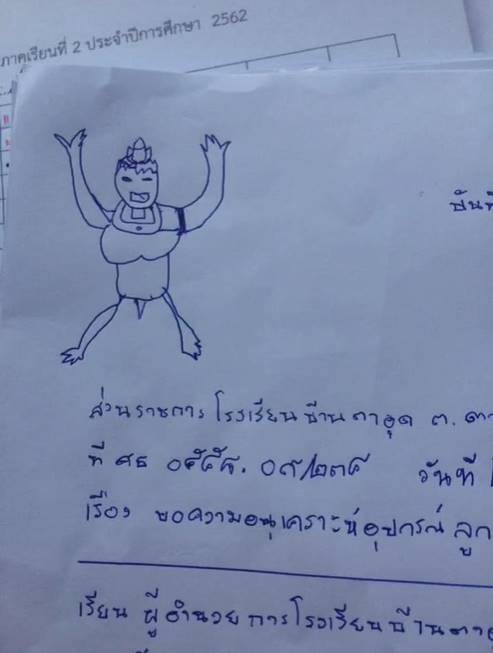 ภาคเรียนที่ 2 ประจำปีการศึกษา 2562
ส่วนราชการ โรงเรียนบ้านตาอุด ต.
ที่ ศธ ๐๕๕๕. ๐๙/๒๓๕ วันที่
เรื่อง ขอความอนุเคราะห์อุปกรณ์ ลูก
เรียน ผู้อำนวยการโรงเรียนบ้านตาอุ